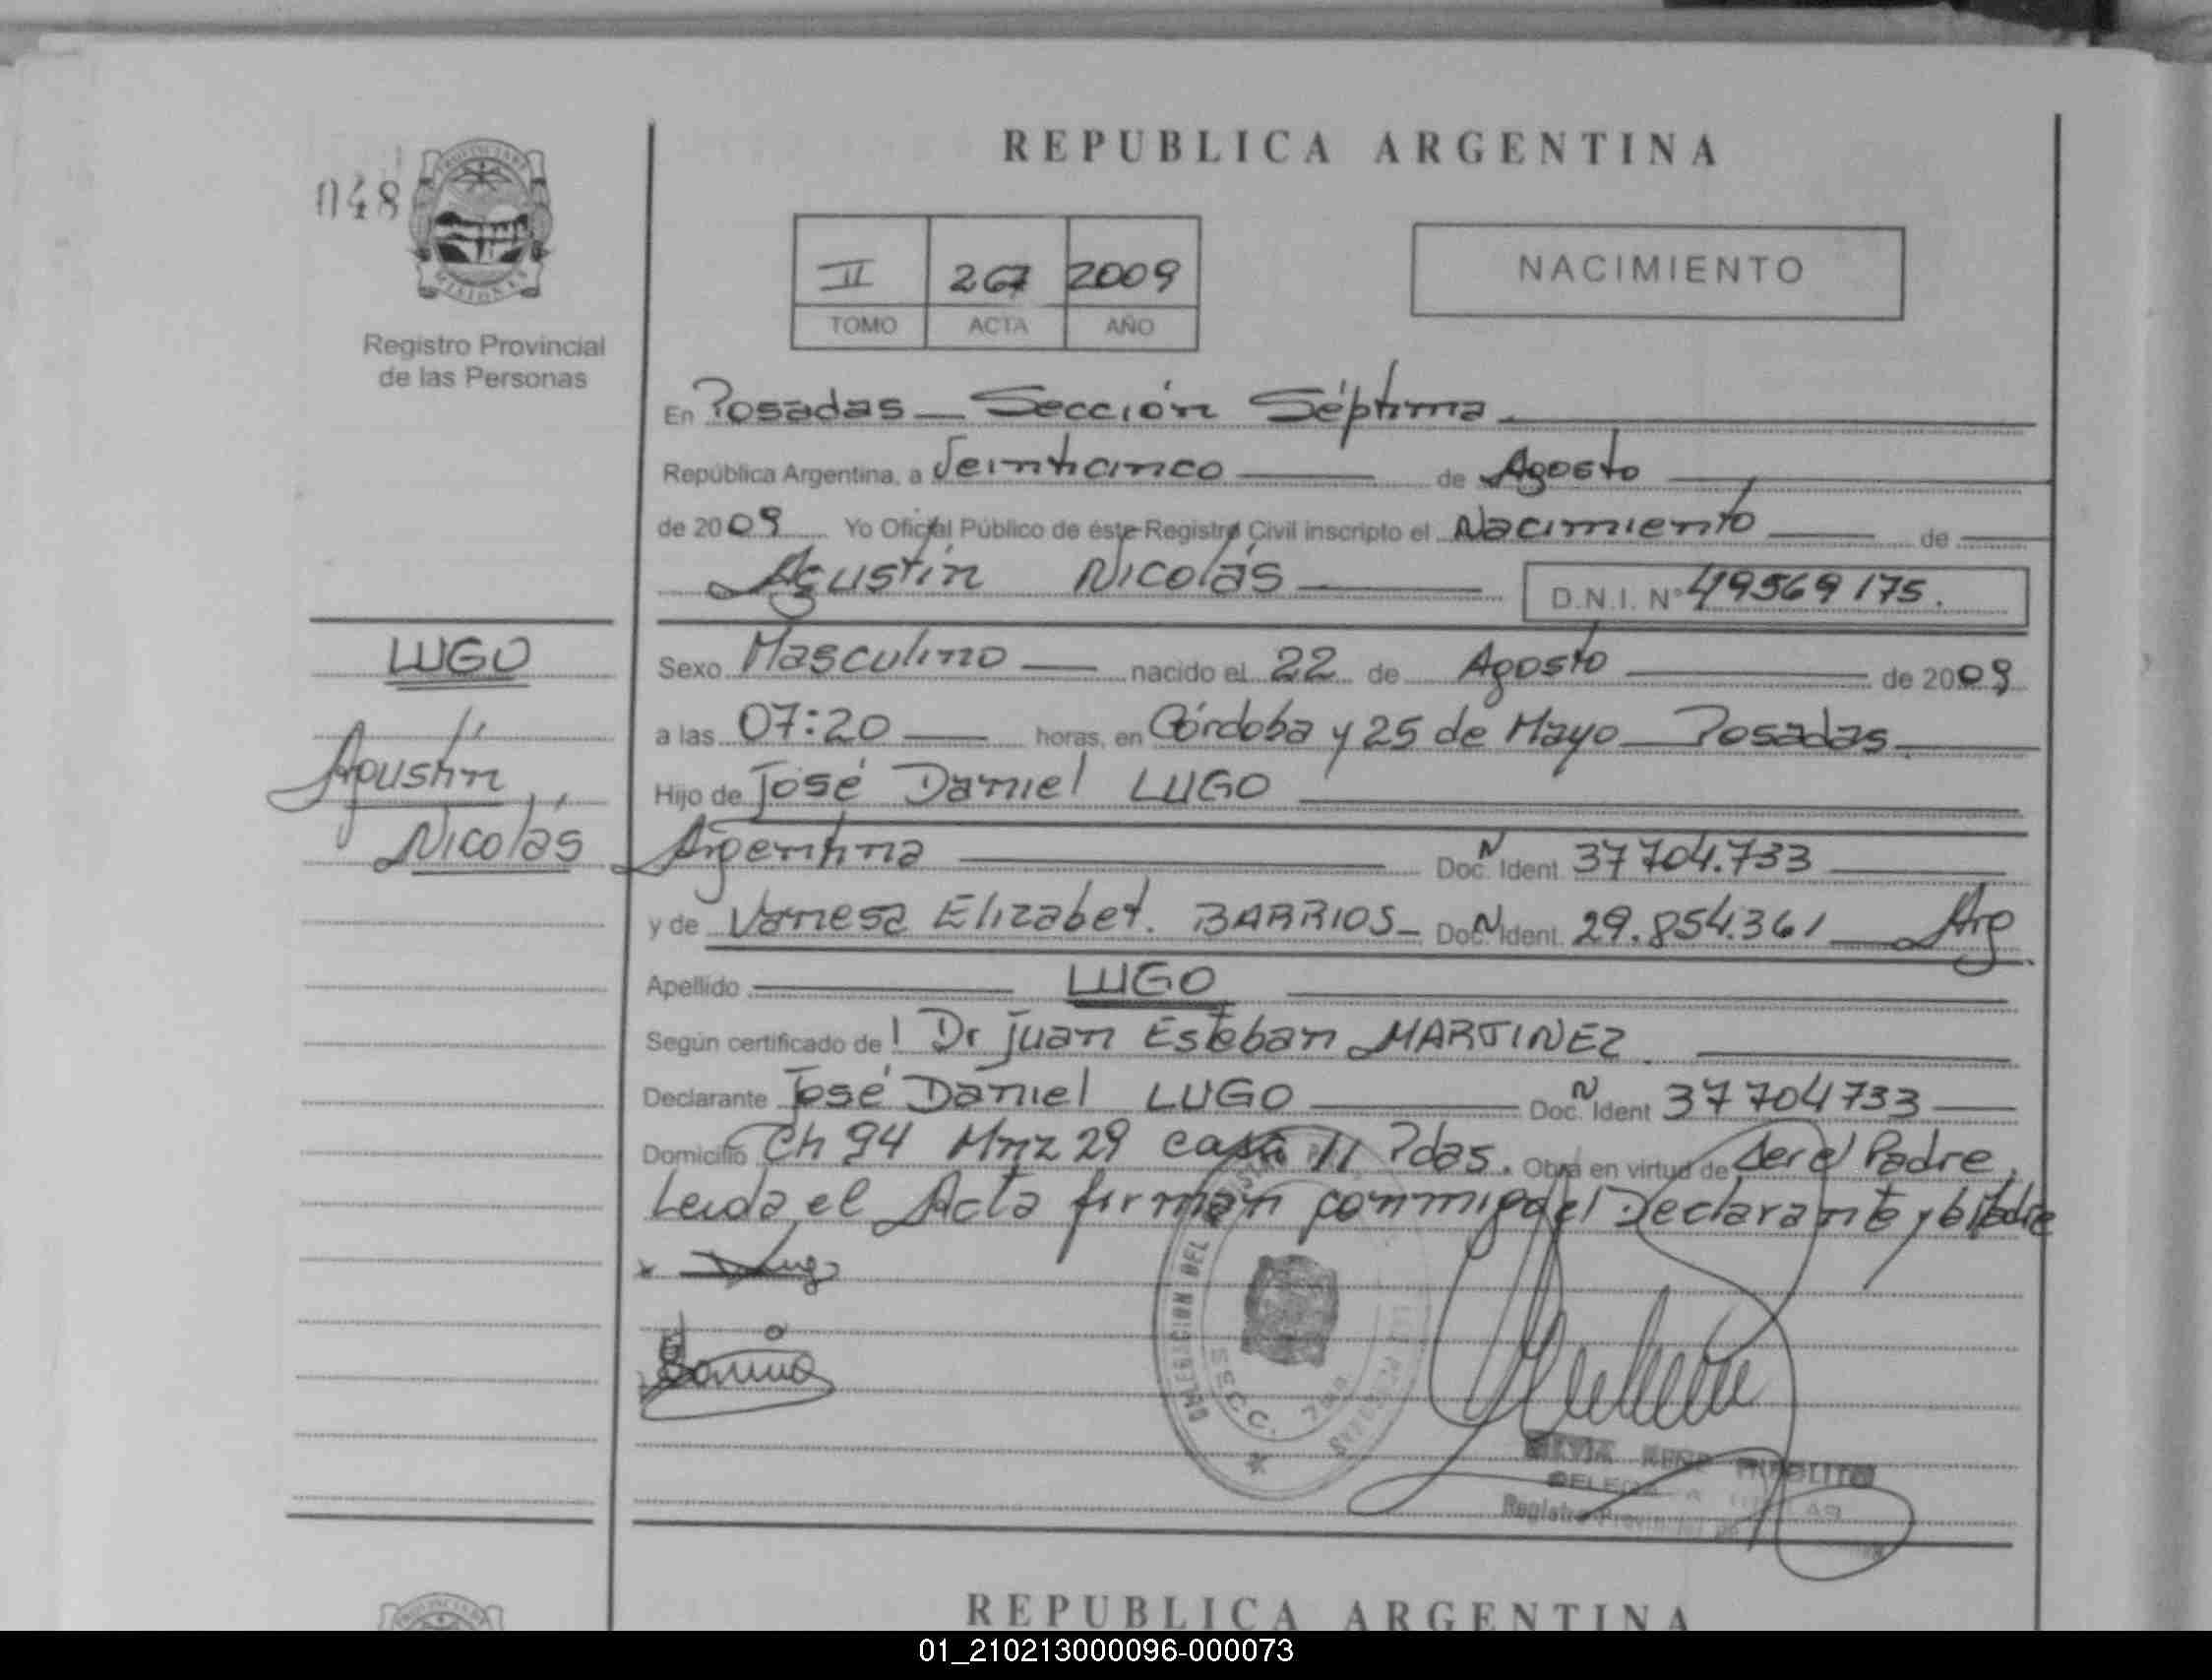 REPUBLICA ARGENTINA
048
PROVINCIA DE
MISIONES
Registro Provincial
de las Personas
II 267 2009
TOMO ACTA AÑO
NACIMIENTO
En Posadas — Sección Séptima
República Argentina, a Veinticinco de Agosto
de 2009 Yo Oficial Público de éste Registro Civil inscripto el Nacimiento de
Agustín Nicolás D.N.I. Nº 49569175.
LUGO
Agustín
Nicolás
Sexo Masculino nacido el 22 de Agosto de 2009
a las 07:20 horas, en Córdoba y 25 de Mayo — Posadas
Hijo de José Daniel LUGO
Argentina Doc. N Ident. 37704.733
y de Vanesa Elizabet. BARRIOS — Doc. N Ident. 29.854.361 — Arg.
Apellido LUGO
Según certificado del Dr Juan Esteban MARTINEZ.
Declarante José Daniel LUGO Doc. N Ident 37704733
Domicilio Ch 94 Mnz 29 casa 11 Pdas. Obra en virtud de ser el Padre.
Leida el Acta firman conmigo el Declarante y la Madre
x Lugo
DELEGACION DEL
SECC. 7ma
REPUBLICA ARGENTINA
01_210213000096-000073